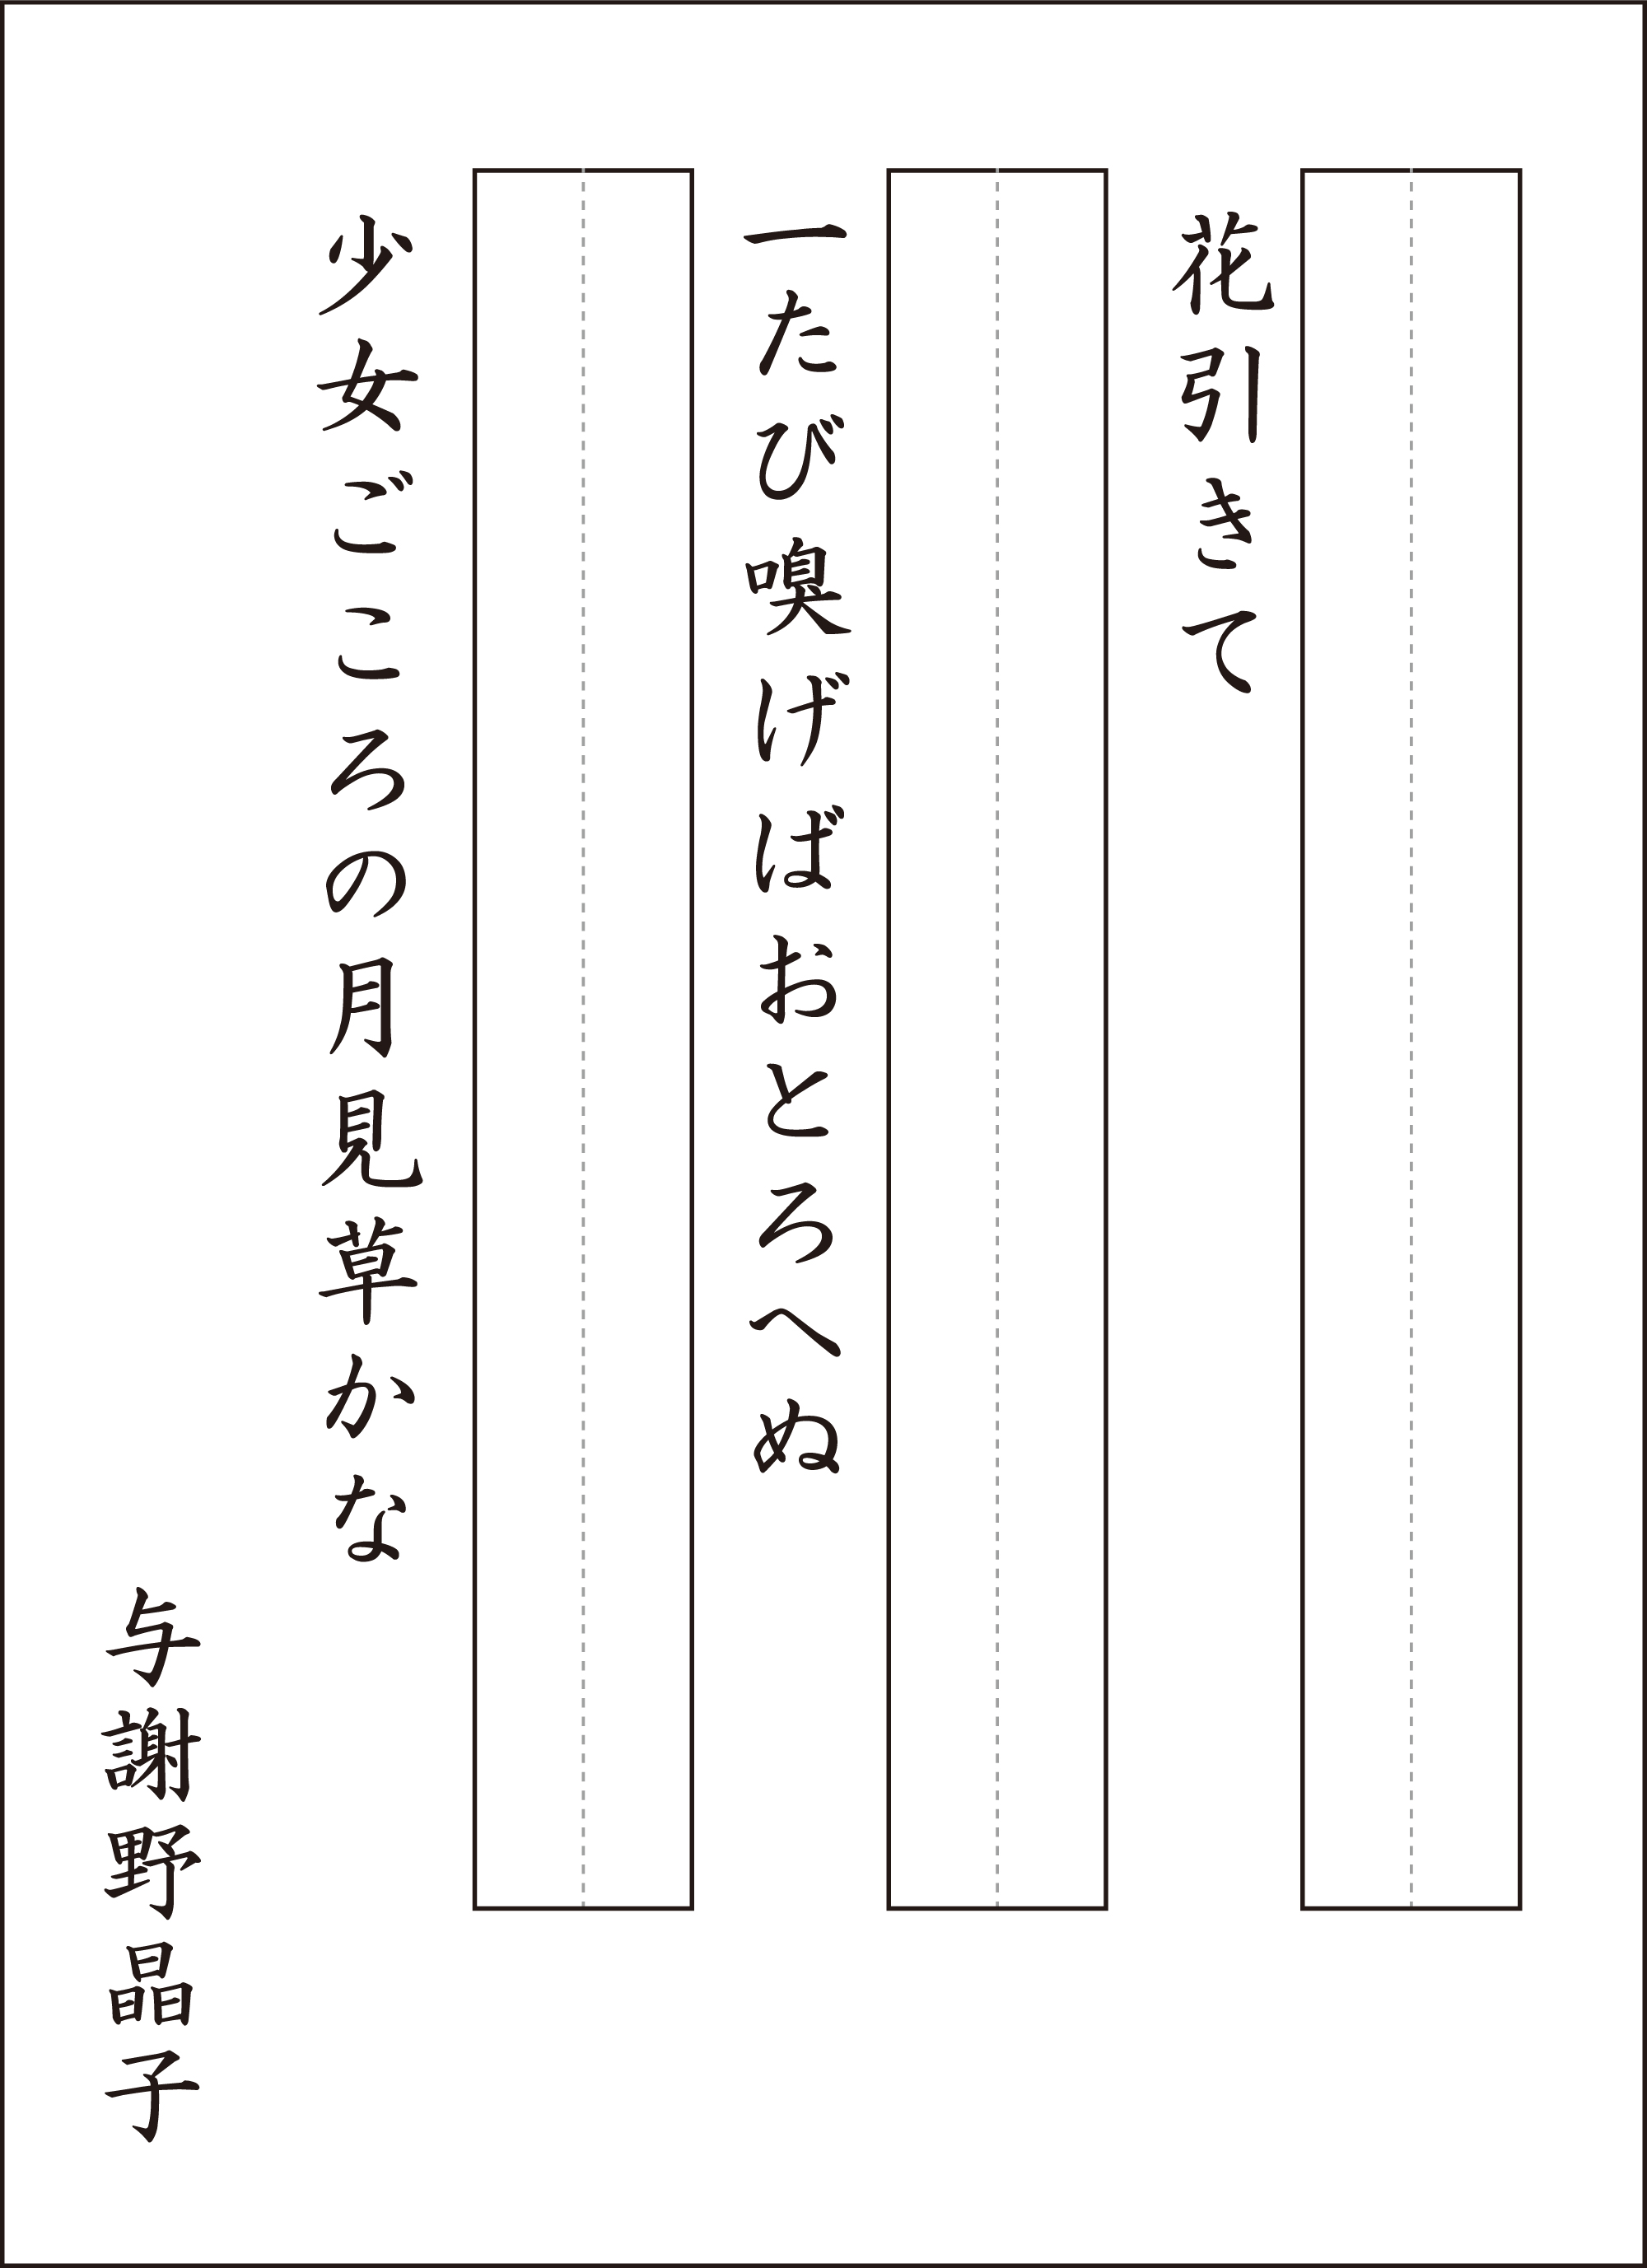 花引きて
一たび嗅げばおとろへぬ
少女ごころの月見草かな
与謝野晶子